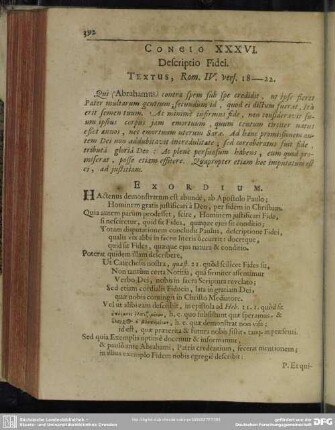 392
CONCIO XXXVI.
Descriptio Fidei.
TEXTUS, Rom. IV. vers. 18—22.
Qui (Abrahamus) contra spem sub spe credidit, ut ipse fieret
Pater multarum gentium, secundum id, quod ei dictum fuerat, ita
erit semen tuum. At minime infirmus fide, non consideravit su-
um ipsius corpus jam emortuum, quum centum circiter natus
esset annos, nec emortuum uterum Saræ. Ad hanc promissionem au-
tem Dei non addubitavit incredulitate; sed corroboratus fuit fide,
tributâ gloriâ Deo: At plene persuasum habens, eum, quod pro-
miserat, posse etiam efficere. Quapropter etiam hoc imputatum est
ei, ad justitiam.
EXORDIUM.
HActenus demonstratum est abunde, ab Apostolo Paulo;
Hominem gratis justificari à Deo, per fidem in Christum.
Quia autem parum prodesset, scire, Hominem justificari Fide,
si nesciretur, quid sit Fides, quæque ejus sit conditio;
Totam disputationem concludit Paulus, descriptione Fidei,
qualis vix alibi in sacris literis occurrit: docetque,
quid sit Fides, quæque ejus natura & conditio.
Poterat quidem illam describere,
Ut Catechesis nostra, quæst. 21. quòd scilicet Fides sit,
Non tantùm certa Notitia, quâ firmiter assentimur
Verbo Dei, nobis in sacris Scriptura revelato;
Sed etiam cordialis Fiducia, sita in gratiam Dei,
quæ nobis contingit in Christo Mediatore.
Vel ut alibi eam describit, in epistola ad Heb. 11. 1. quòd sit
h. e. quo subsistunt quæ sperantur, &
h. e. quæ demonstrat non visa;
id est, quæ præterita & futura nobis sistit, tanquam præsentia.
Sed quia Exemplis optimè docemur & informamur,
& paulò antè Abrahami, Patris credentium, fecerat mentionem;
in illius exemplo Fidem nobis egregiè describit.
P. Et qui-